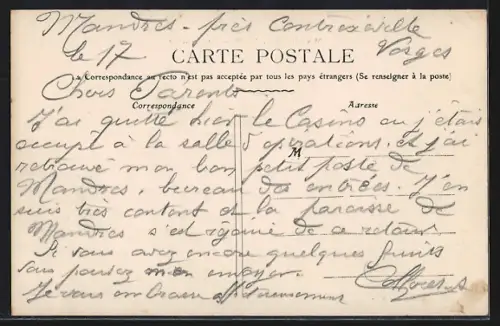 Mandres - près Contrexeville
le 17 Vosges
CARTE POSTALE
La Correspondance au recto n'est pas acceptée par tous les pays étrangers (Se renseigner à la poste)
Chers Parents
Correspondance Adresse
J'ai quitté hier le Casino ou j'étais
occupé à la salle d'opérations, et j'ai
M
retrouvé mon bon petit poste de
Mandres, bureau des entrées. J'en
suis très content et la paroisse de
Mandres s'est de ce retour
Si vous avez encore quelques fruits
vous pouvez m'en envoyer.
Je vous embrasse affectueusement